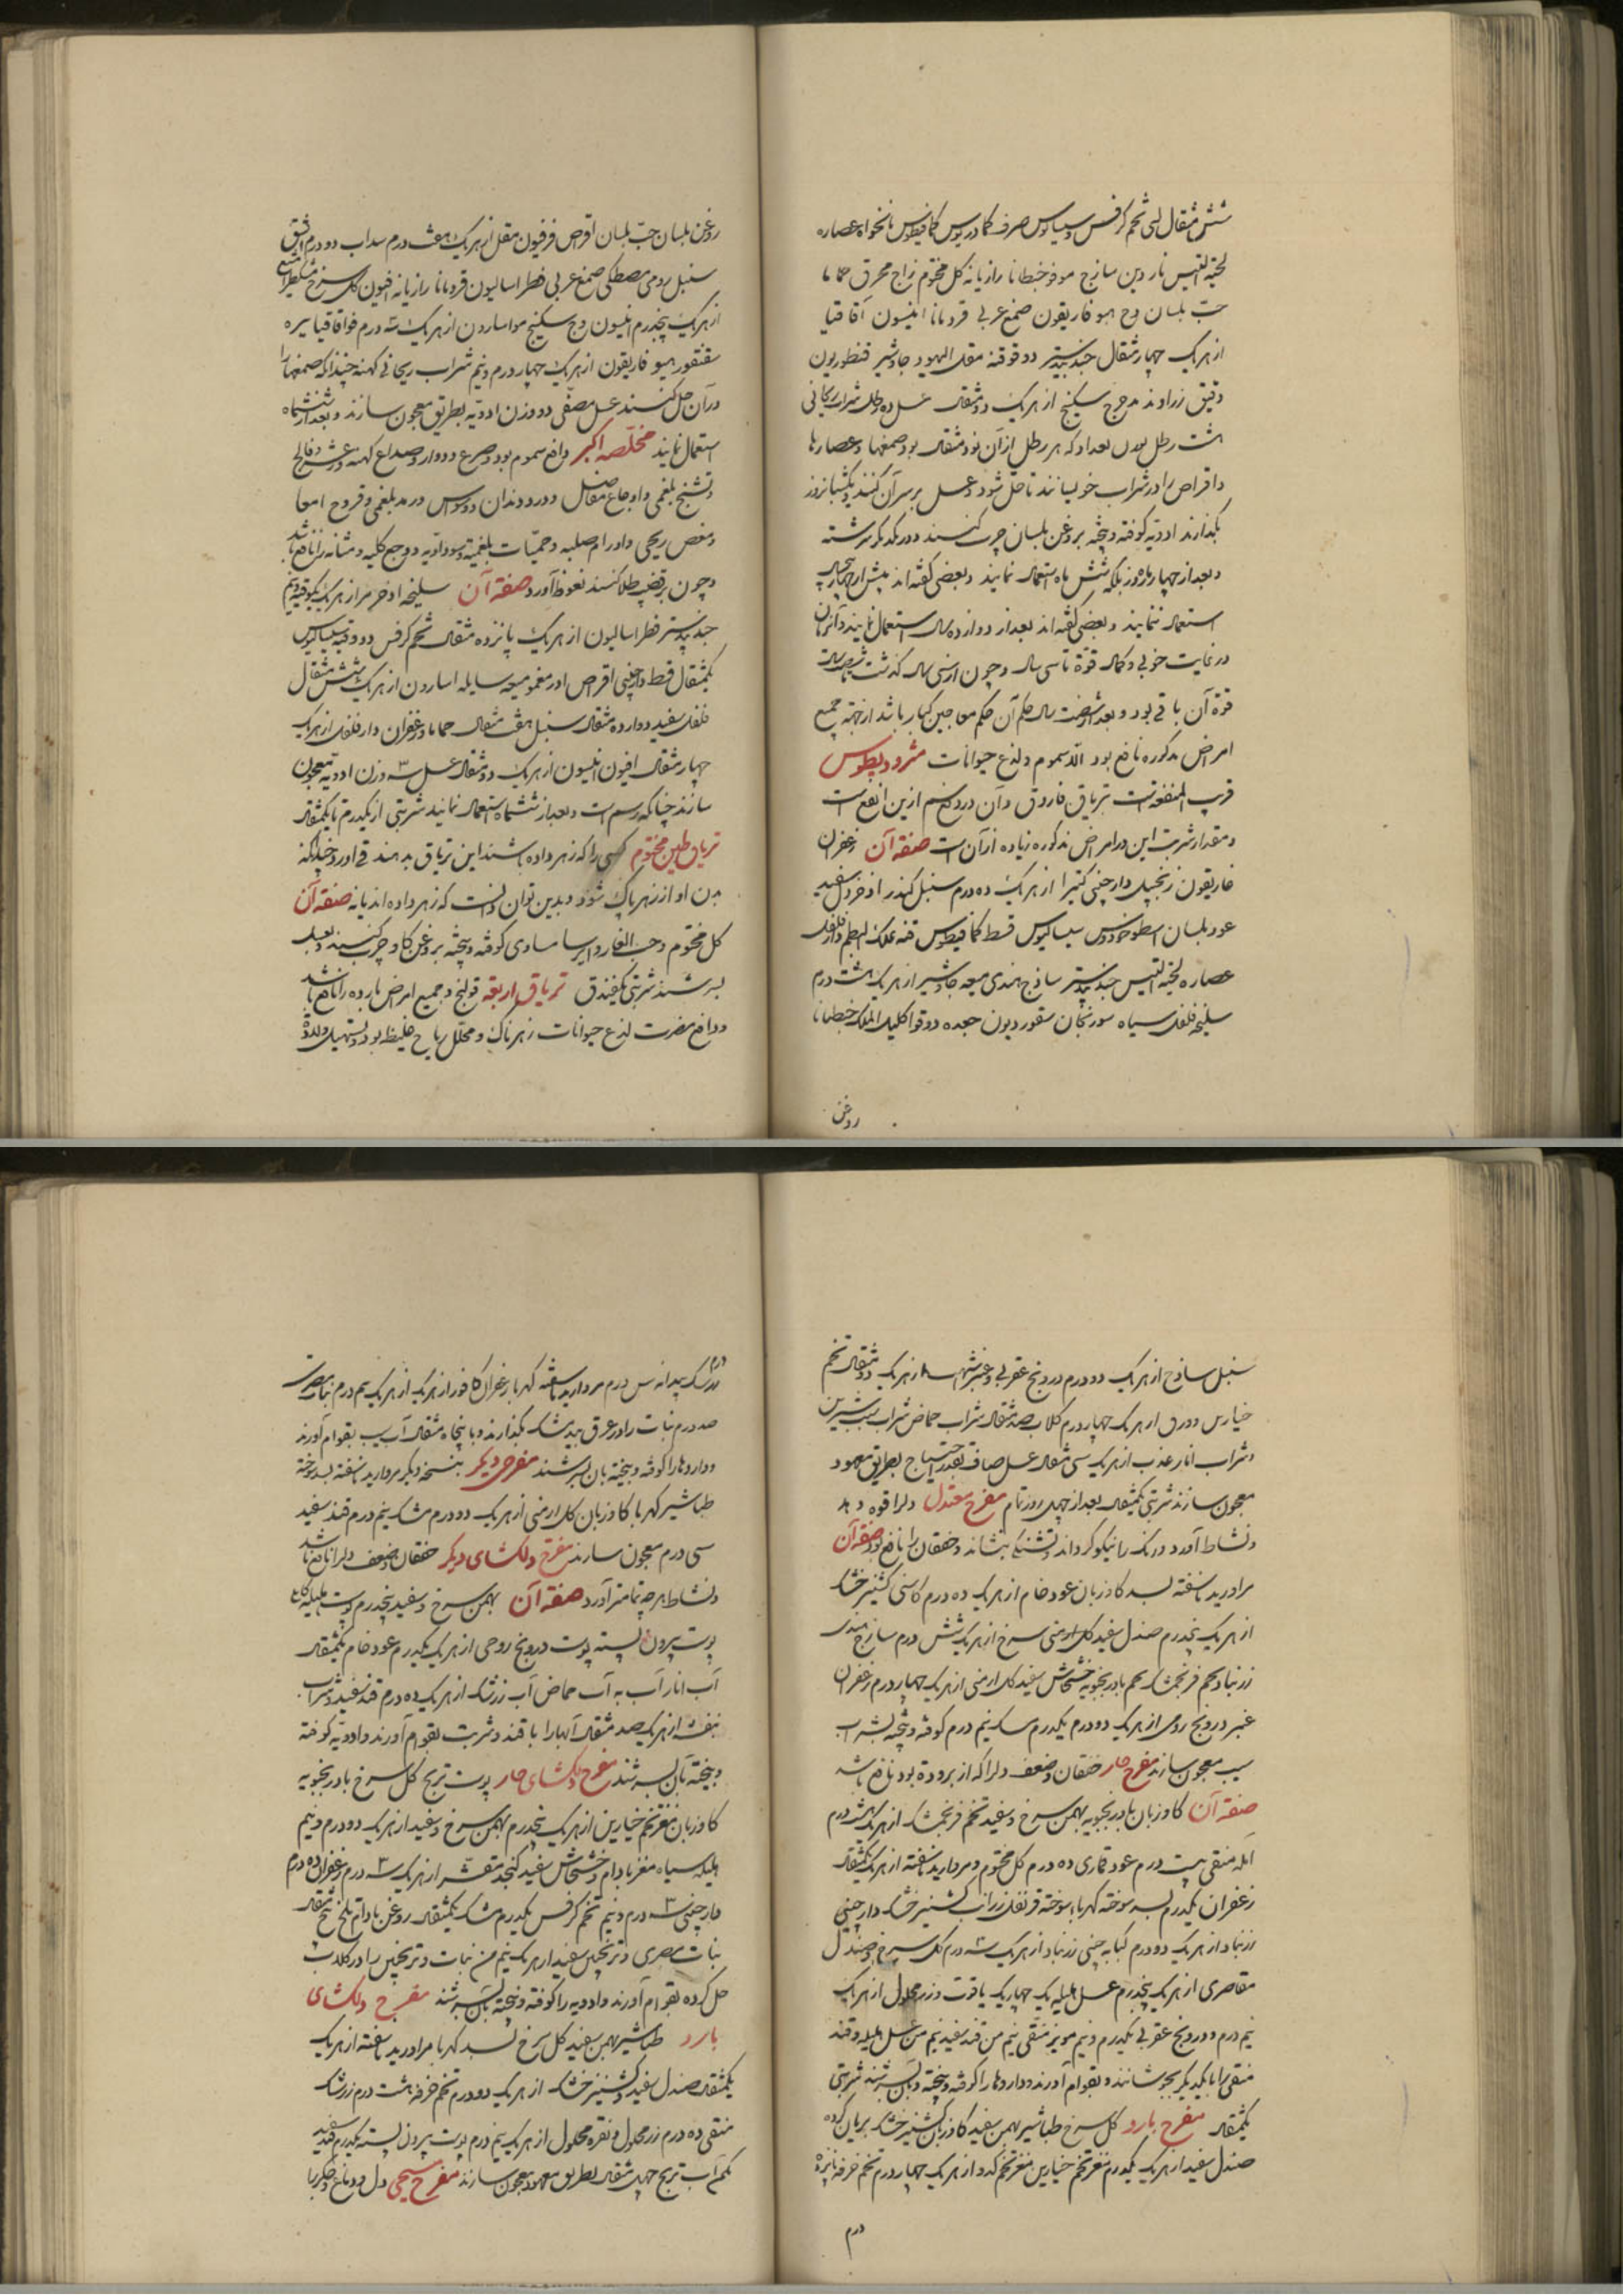 شش مثقال لبنی تخم کرفس وسیسالیوس حرف کمادریوس کمافیطوس نانخواه عصاره
لحیة التیس ناردین ساذج مو فو خنطیانا رازیانه کل مختوم زاج محرق حماما
حب بلسان وج هیوفاریقون صمغ عربی قردمانا انیسون اقاقیا
از هریک چهار مثقال جندبیدستر دوقو قنه مقل الیهود جاوشیر قنطوریون
دقیق زراوند مدحرج سکبینج از هریک دو مثقال عسل ده رطل شراب ریحانی
هشت رطل بوزن بغداد که هر رطل از آن نود مثقال بود صمغها وعصارها
واقراص را در شراب خویسانند تا حل شود وعسل بر سر آن کنند ویکشبانروز
بگذارند ادویه کوفته وپخته بروغن بلسان چرب کنند ودر یکدیکر سرشته
وبعد از چهار ماه ونیم بلکه شش ماه استعمال نمایند وبعضی گفته اند پیش از چهار سال
استعمال ننمایند وبعضی گفته اند بعد از دوازده سال استعمال نمایند وآنزمان
در غایت خوبی وکمال قوة تا سی سال وچون از سی سال گذشت تا شصت سال
قوة آن باقی بود وبعد از شصت سال حکم آن حکم معاجین کبار باشد از جهة جمیع
امراض مذکوره نافع بود الا سموم ولدغ حیوانات مثرودیطوس
قریب المنفعة است بتریاق فاروق وآن در دفع سم ازین انفع است
ومقدار شربت این در امراض مذکوره زیاده از آن است صفة آن زعفران
غاریقون زنجبیل دارچینی کتیرا از هریک ده درم سنبل کندر اذخر خردل سفید
عود بلسان اسطوخودوس سیسالیوس قسط کمافیطوس قنه علک البطم دارفلفل
عصاره لحیة التیس جندبیدستر ساذج هندی میعه جاوشیر از هریک هشت درم
سلیخه فلفل سیاه سورنجان سقوردیون جعده دوقو اکلیل الملک خنطیانا
روغن
روغن بلسان حب بلسان اقراص قرفیون مقل از هریک هفت درم سداب دو درم
سنبل رومی مصطکی صمغ عربی فطراسالیون قردمانا رازیانه افیون کل سرخ مشکطرامشیع
از هریک پنجدرم انیسون وج سکبینج مو اسارون از هریک سه درم فو اقاقیا سره
سقنقور هیوفاریقون از هریک چهار درم ونیم شراب ریحانی کهنه چندانکه صمغها را
در آن حل کنند عسل مصفی دو وزن ادویه بطریق معجون سازند وبعد از ششماه
استعمال نمایند مخلصه اکبر دافع سموم بود وصرع ودوار وصداع کهنه ورعشه وفالج
وتشنج بلغمی واوجاع مفاصل ودرد دندان ووسواس وربو بلغمی وقروح امعا
ومغص ریحی واورام صلبه وحمیات بلغمیه وسوداویه ووجع کلیه ومثانه را نافع باشد
وچون بر قضیب طلا کنند نعوظ آورد صفة آن سلیخه اذخر مر از هریک یکوقیه ونیم
جندبیدستر فطراسالیون از هریک پانزده مثقال تخم کرفس دو وقیه سیسالیوس
یکمثقال قسط دارچینی اقراص اورمغمو میعه سایله اسارون از هریک شش مثقال
فلفل سفید دوازده مثقال سنبل هفت مثقال حماما وزعفران دارفلفل از هریک
چهار مثقال افیون انیسون از هریک دو مثقال عسل سه وزن ادویه معجون
سازند چنانکه رسم است وبعد از ششماه استعمال نمایند شربتی از یکدرم تا یکمثقال
تریاق طین مختوم کسی را که زهر داده باشند این تریاق بدهند قی آورد چندانکه
بدن او از زهر پاک شود وبدین توان دانست که زهر داده اند یا نه صفة آن
کل مختوم وحب الغار وایرسا مساوی کوفته وپخته بروغن کاو چرب کنند وبعسل
بسرشند شربتی یکفندق تریاق اربعه قولنج وجمیع امراض بارده را نافع باشد
ودافع مضرت لدغ حیوانات زهرناک ومحلل ریاح غلیظ بود وتسهیل ولادة
سنبل ساذج از هریک دو درم درونج عقربی وعنبر اشهب از هریک دو مثقال تخم
خیارین ورق از هریک چهار درم گلاب صد مثقال شراب حماض شراب سیب شیرین
وشراب انار عذب از هریک سی مثقال عسل صاف بقدر احتیاج بطریق معهود
معجون سازند شربتی یکمثقال بعد از چهل روز تمام مفرح معتدل دلرا قوه دهد
ونشاط آورد ورنک را نیکو گرداند وتشنگی بنشاند وخفقان را نافع بود صفة آن
مراورید ناسفته بسد کاوزبان عود خام از هریک ده درم کاسنی کشنیز خشک
از هریک پنجدرم صندل سفید کل ارمنی سرخ از هریک شش درم ساذج هندی
زرنباد تخم فرنجمشک تخم بادرنجبویه خشخاش سفید کل ارمنی از هریک چهار درم زعفران
عنبر درونج رومی از هریک دو درم یکدرم مسک نیم درم کوفته وپخته بشراب
سیب معجون سازند مفرح حار خفقان وضعف دلرا که از برودة بود نافع باشد
صفة آن کاوزبان بادرنجبویه بهمن سرخ وسفید تخم فرنجمشک از هریک هشت درم
آمله منقی بیست درم عود قماری ده درم کل مختوم ومروارید ناسفته از هریک یکمثقال
زعفران یکدرم بسد سوخته کهربا سوخته قرنفل زرانب کشنیز خشک دارچینی
زرنباد از هریک دو درم کبابه چینی زرنباد از هریک سه درم کل سرخ وصندل
مقاصری از هریک پنجدرم عسل هلیله یک چهاریک یاقوت وزر محلول از هریک
نیم درم ودرونج عقربی یکدرم ونیم مویز منقی نیم من قند سفید نیم من عسل هلیله وقند
منقی را با یکدیکر بجوشانند وبقوام آورند وداروها را کوفته وپخته وبآن بسرشند شربتی
یکمثقال مفرح بارد کل سرخ طباشیر بهمن سفید کاوزبان کشنیز خشک بریان کرده
صندل سفید از هریک یکدرم مغز تخم خیارین مغز تخم کدو از هریک چهار درم تخم خرفه پانزده
درم
درم زرشک بیدانه سی درم مروارید ناسفته کهربا زعفران کافور از هریک نیم درم نبات مصری
صد درم نبات را در عرق بیدمشک بگذارند وبا پنجاه مثقال آب سیب بقوام آورند
وداروها را کوفته وپخته بآن بسرشند مفرحی دیکر بنسخه دیکر مروارید ناسفته بسد سوخته
طباشیر کهربا کاوزبان کل ارمنی از هریک دو درم مشک نیم درم قند سفید
سی درم معجون سازند مفرح دلکشای دیکر خفقان وضعف دلرا نافع باشد
ونشاط هرچه تمامتر آورد صفة آن بهمن سرخ وسفید پنجدرم پوست هلیله کابلی
پوست بیرون پسته پوست درونج رومی از هریک یکدرم عود خام یکمثقال
آب انار آب به آب حماض آب زرشک از هریک ده درم قند سفید وشراب
بنفشه از هریک صد مثقال آبها را با قند وشربت بقوام آورند وادویه کوفته
وپخته بآن بسرشند مفرح دلکشای حار پوست ترنج کل سرخ بادرنجبویه
کاوزبان مغز تخم خیارین از هریک پنجدرم بهمن سرخ وسفید از هریک دو درم ونیم
هلیله سیاه مغز بادام وخشخاش سفید کنجد مقشر از هریک سه درم وزعفران ده درم
دارچینی سه درم ونیم تخم کرفس یکدرم مشک یکمثقال روغن بادام تلخ پنج مثقال
نبات مصری وترنجبین سفید از هریک نیم من نبات وترنجبین را در گلاب
حل کرده بقوام آورند وادویه را کوفته وپخته بآن بسرشند مفرح دلکشای
بارد طباشیر بهمن سفید کل سرخ بسد کهربا مراورید ناسفته از هریک
یکمثقال صندل سفید وکشنیز خشک از هریک دو درم تخم خرفه هشت درم زرشک
منقی ده درم زر محلول ونقره محلول از هریک نیم درم پوست بیرون پسته یکدرم قند سفید
یکمن آب ترنج چهل مثقال بطریق معهود معجون سازند مفرح مسیحی دل ودماغ وجگر را